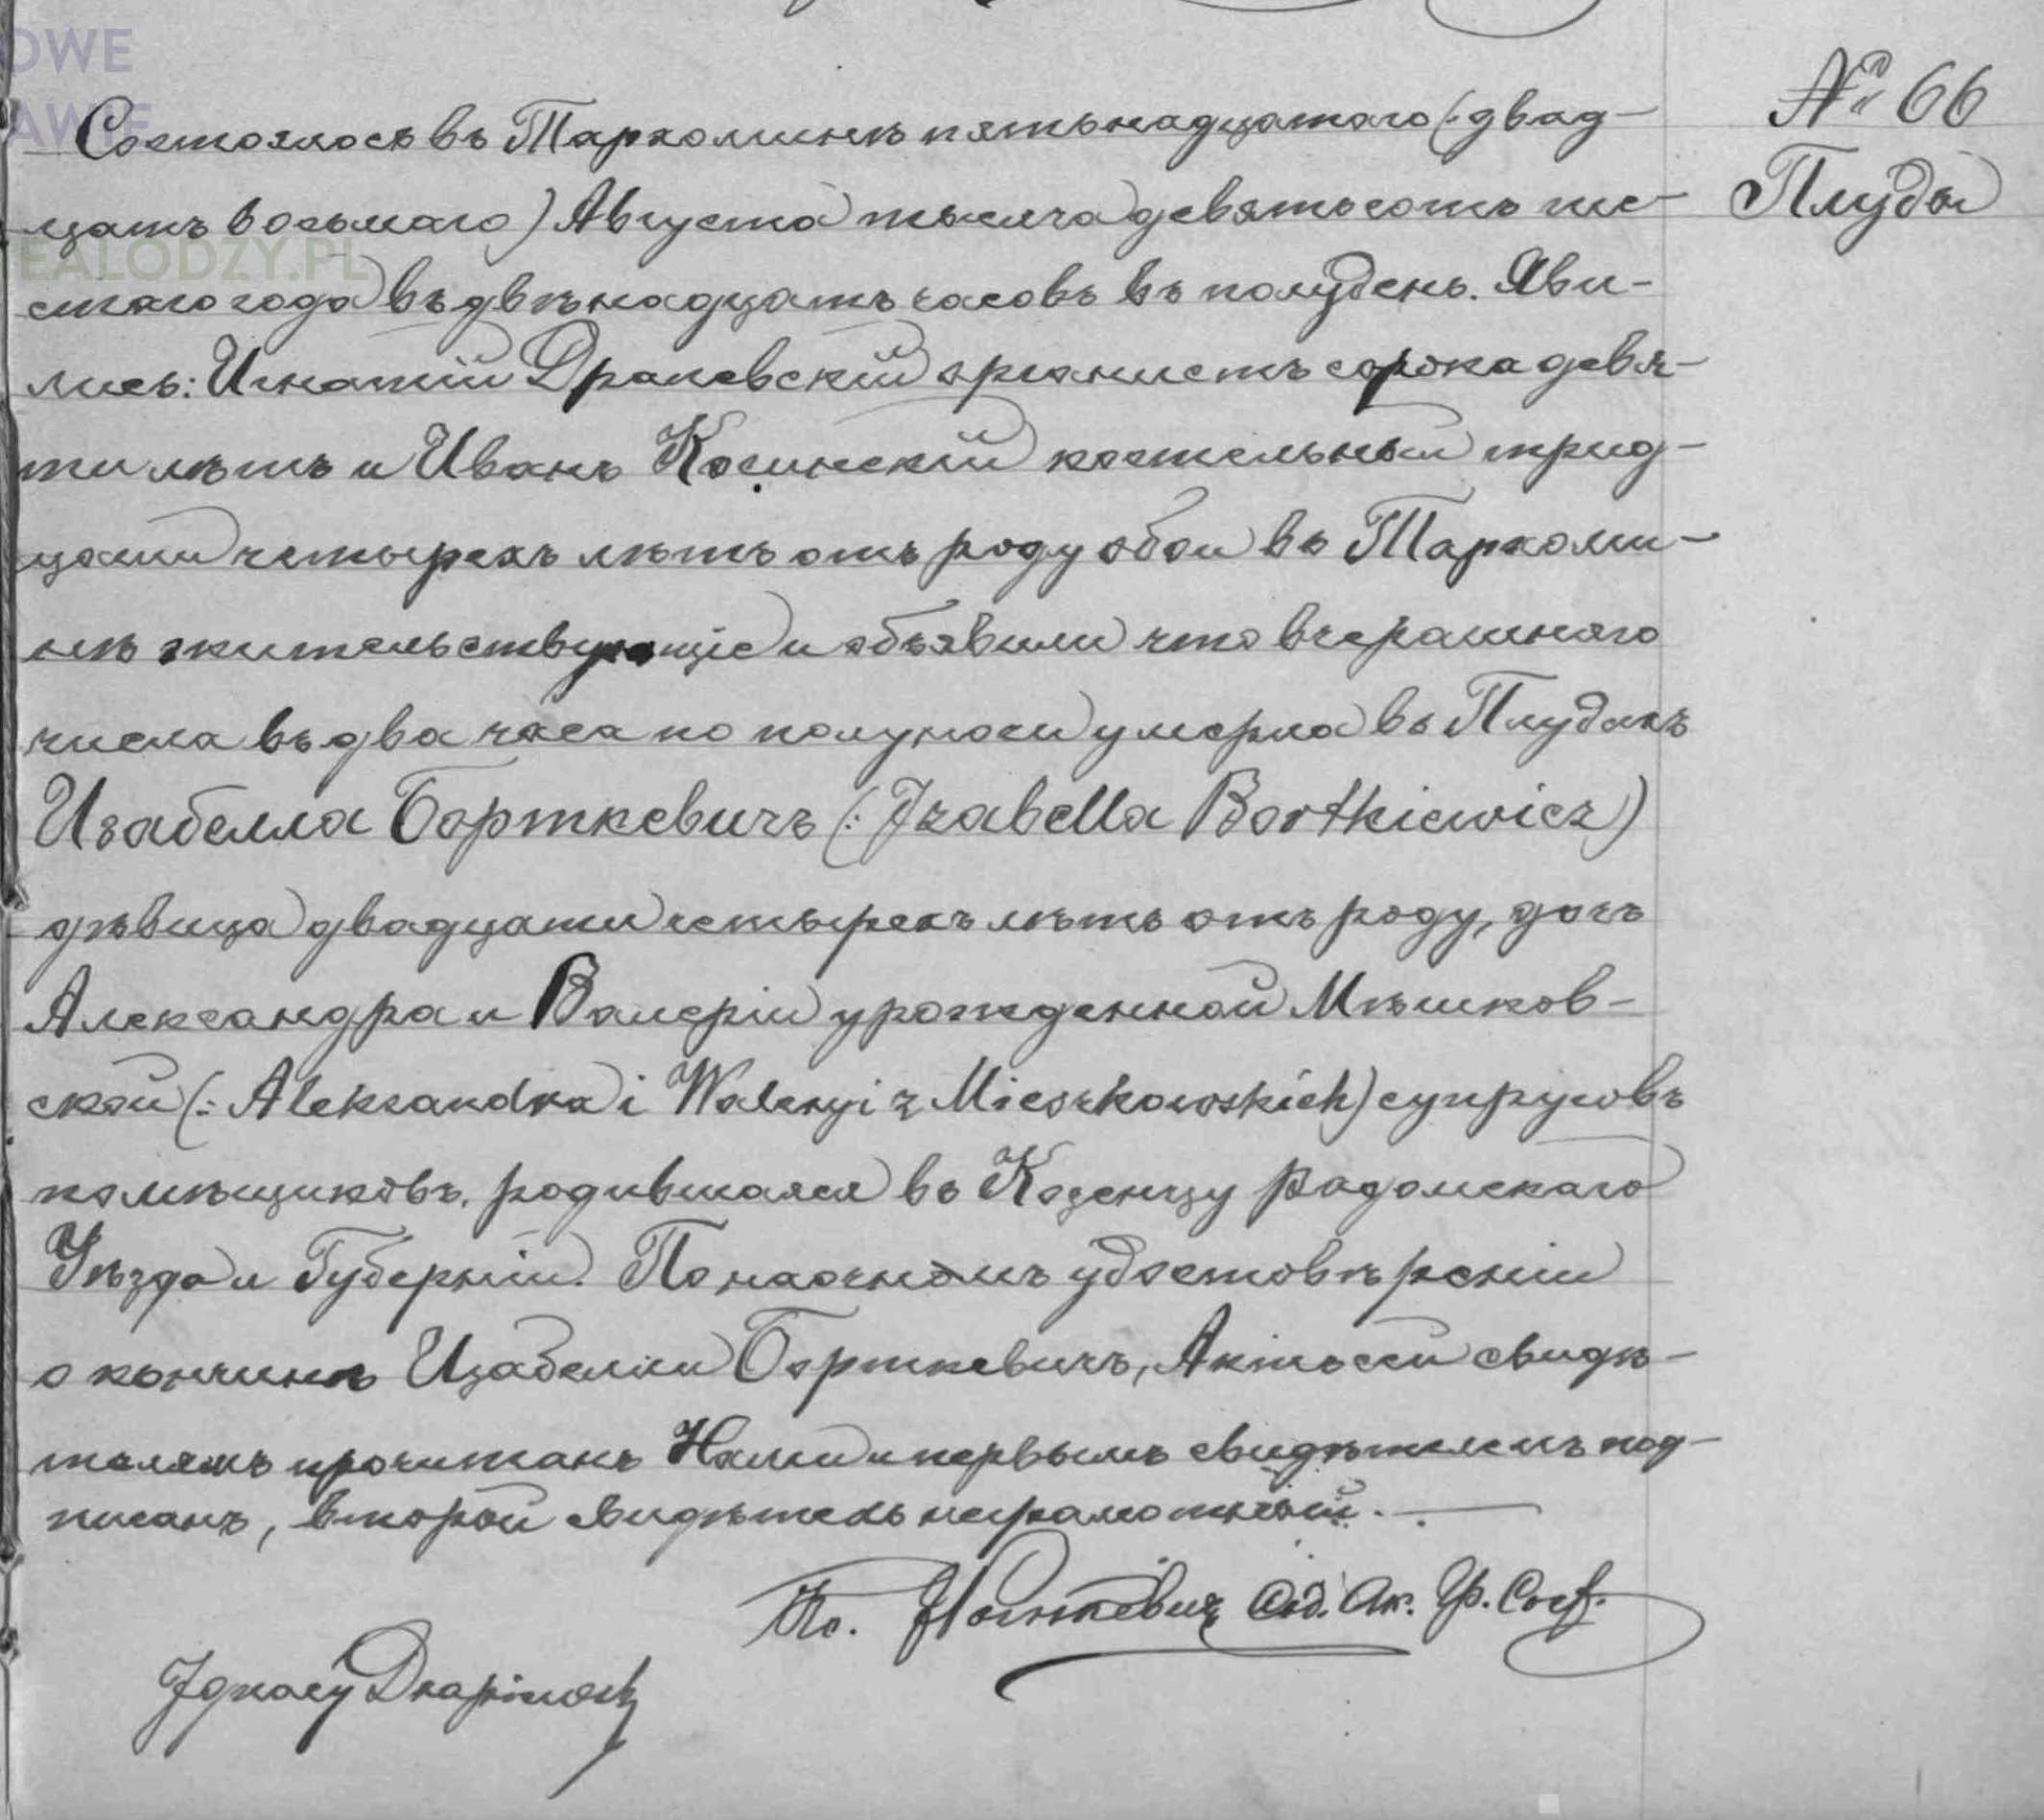 № 66
Плуды
Состоялось въ Тархоминѣ пятьнадцатаго (: двад-
цать восьмаго) Августа тысяча девятьсотъ ше-
стаго года въ двѣнадцать часовъ въ полудень. Яви-
лись: Игнатій Драпевскій органистъ сорока девя-
ти лѣтъ и Иванъ Косинскій костельный трид-
цати четырехъ лѣтъ отъ роду обои въ Тархоми-
нѣ жительствующіе и объявили что вчерашняго
числа въ два часа по полуночи умерла въ Плудахъ
Изабелла Борткевичъ (: Izabella Bortkiewicz)
дѣвица двадцати четырехъ лѣтъ отъ роду, дочь
Александра и Валеріи урожденной Мѣшков-
ской (: Aleksandra i Waleryi z Mieszkowskich) супруговъ
помѣщиковъ. родившаяся въ Козенцу Радомскаго
Уѣзда и Губерніи. По наочномъ удостовѣреніи
о кончинѣ Изабеллы Борткевичъ, Актъ сей свидѣ-
телямъ прочитанъ Нами и первымъ свидѣтелемъ под-
писанъ, второй свидѣтель неграмотный. —
Кс. Сод. Ак. Гр. Сост.
Ignacy Drapiewski
OWE
AWIE
EALODZY.PL